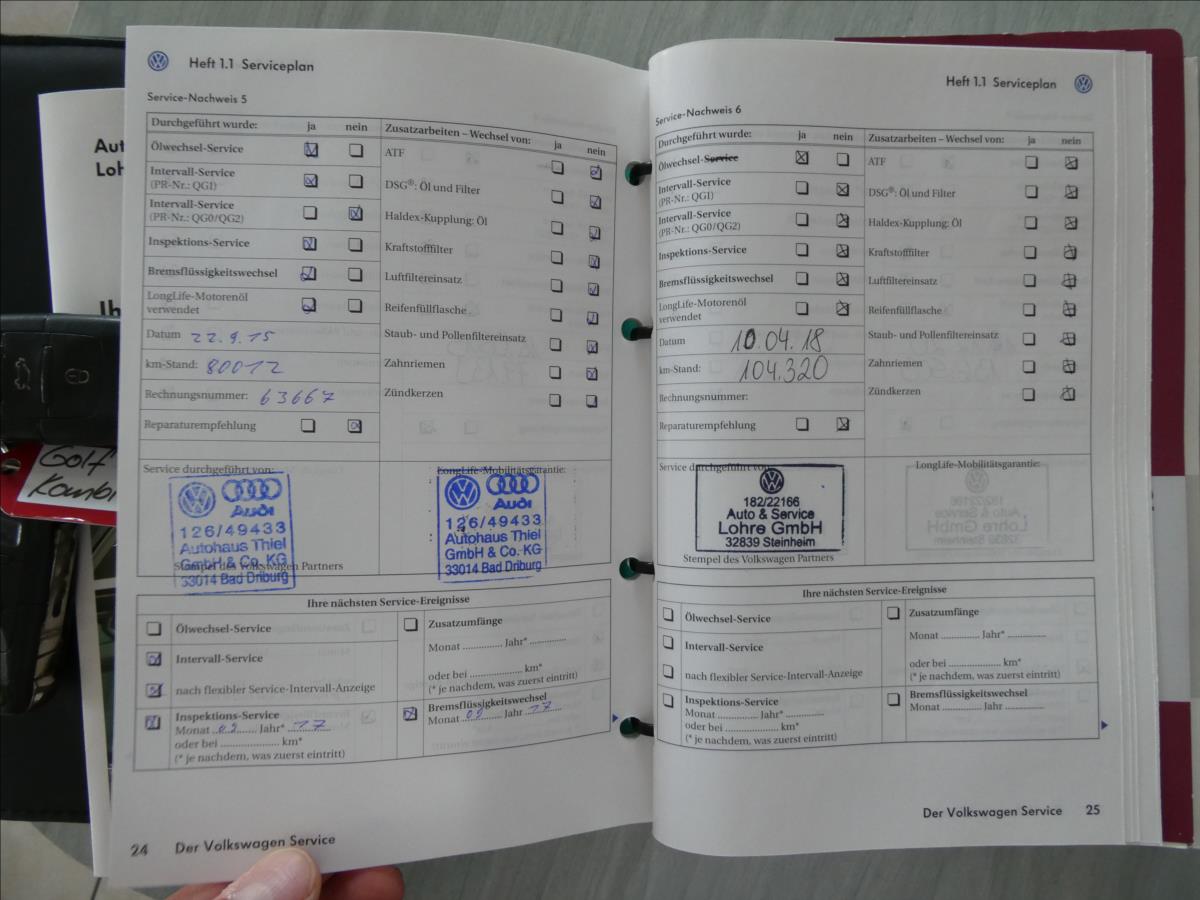 Aut
Loh
Ih
Golf
Kombi
Heft 1.1 Serviceplan
Service-Nachweis 5
Durchgeführt wurde: ja nein
Ölwechsel-Service
Intervall-Service
(PR-Nr.: QGI)
Intervall-Service
(PR-Nr.: QG0/QG2)
Inspektions-Service
Bremsflüssigkeitswechsel
LongLife-Motorenöl
verwendet
Datum 22.9.15
km-Stand: 80012
Rechnungsnummer: 63667
Reparaturempfehlung
Zusatzarbeiten – Wechsel von: ja nein
ATF
DSG®: Öl und Filter
Haldex-Kupplung: Öl
Kraftstofffilter
Luftfiltereinsatz
Reifenfüllflasche
Staub- und Pollenfiltereinsatz
Zahnriemen
Zündkerzen
Service durchgeführt von:
Audi
126/49433
Autohaus Thiel
GmbH & Co. KG
33014 Bad Driburg
Stempel des Volkswagen Partners
LongLife-Mobilitätsgarantie:
Audi
126/49433
Autohaus Thiel
GmbH & Co. KG
33014 Bad Driburg
Ihre nächsten Service-Ereignisse
Ölwechsel-Service
Intervall-Service
nach flexibler Service-Intervall-Anzeige
Inspektions-Service
Monat 09 Jahr* 17
oder bei .................... km*
(* je nachdem, was zuerst eintritt)
Zusatzumfänge
Monat ............. Jahr* .............
oder bei .................... km*
(* je nachdem, was zuerst eintritt)
Bremsflüssigkeitswechsel
Monat 09 Jahr 17
24 Der Volkswagen Service
Heft 1.1 Serviceplan
Service-Nachweis 6
Durchgeführt wurde: ja nein
Ölwechsel-Service
Intervall-Service
(PR-Nr.: QGI)
Intervall-Service
(PR-Nr.: QG0/QG2)
Inspektions-Service
Bremsflüssigkeitswechsel
LongLife-Motorenöl
verwendet
Datum 10.04.18
km-Stand: 104.320
Rechnungsnummer:
Reparaturempfehlung
Zusatzarbeiten – Wechsel von: ja nein
ATF
DSG®: Öl und Filter
Haldex-Kupplung: Öl
Kraftstofffilter
Luftfiltereinsatz
Reifenfüllflasche
Staub- und Pollenfiltereinsatz
Zahnriemen
Zündkerzen
Service durchgeführt von:
182/22166
Auto & Service
Lohre GmbH
32839 Steinheim
Stempel des Volkswagen Partners
LongLife-Mobilitätsgarantie:
182/22166
Auto & Service
Lohre GmbH
32839 Steinheim
Ihre nächsten Service-Ereignisse
Ölwechsel-Service
Intervall-Service
nach flexibler Service-Intervall-Anzeige
Inspektions-Service
Monat ............. Jahr* .............
oder bei .................... km*
(* je nachdem, was zuerst eintritt)
Zusatzumfänge
Monat ............. Jahr* .............
oder bei .................... km*
(* je nachdem, was zuerst eintritt)
Bremsflüssigkeitswechsel
Monat ............. Jahr .............
Der Volkswagen Service 25